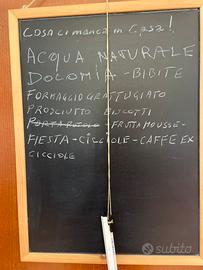 COSA CI MANCA IN CASA!
ACQUA NATURALE
DOLOMIA - BIBITE
FORMAGGIO GRATTUGIATO
PROSCIUTTO BISCOTTI
PORTA ROTOLO - FRUTTA MOUSSE -
FIESTA - CICCIOLE - CAFFE EX
CICCIOLE
subito